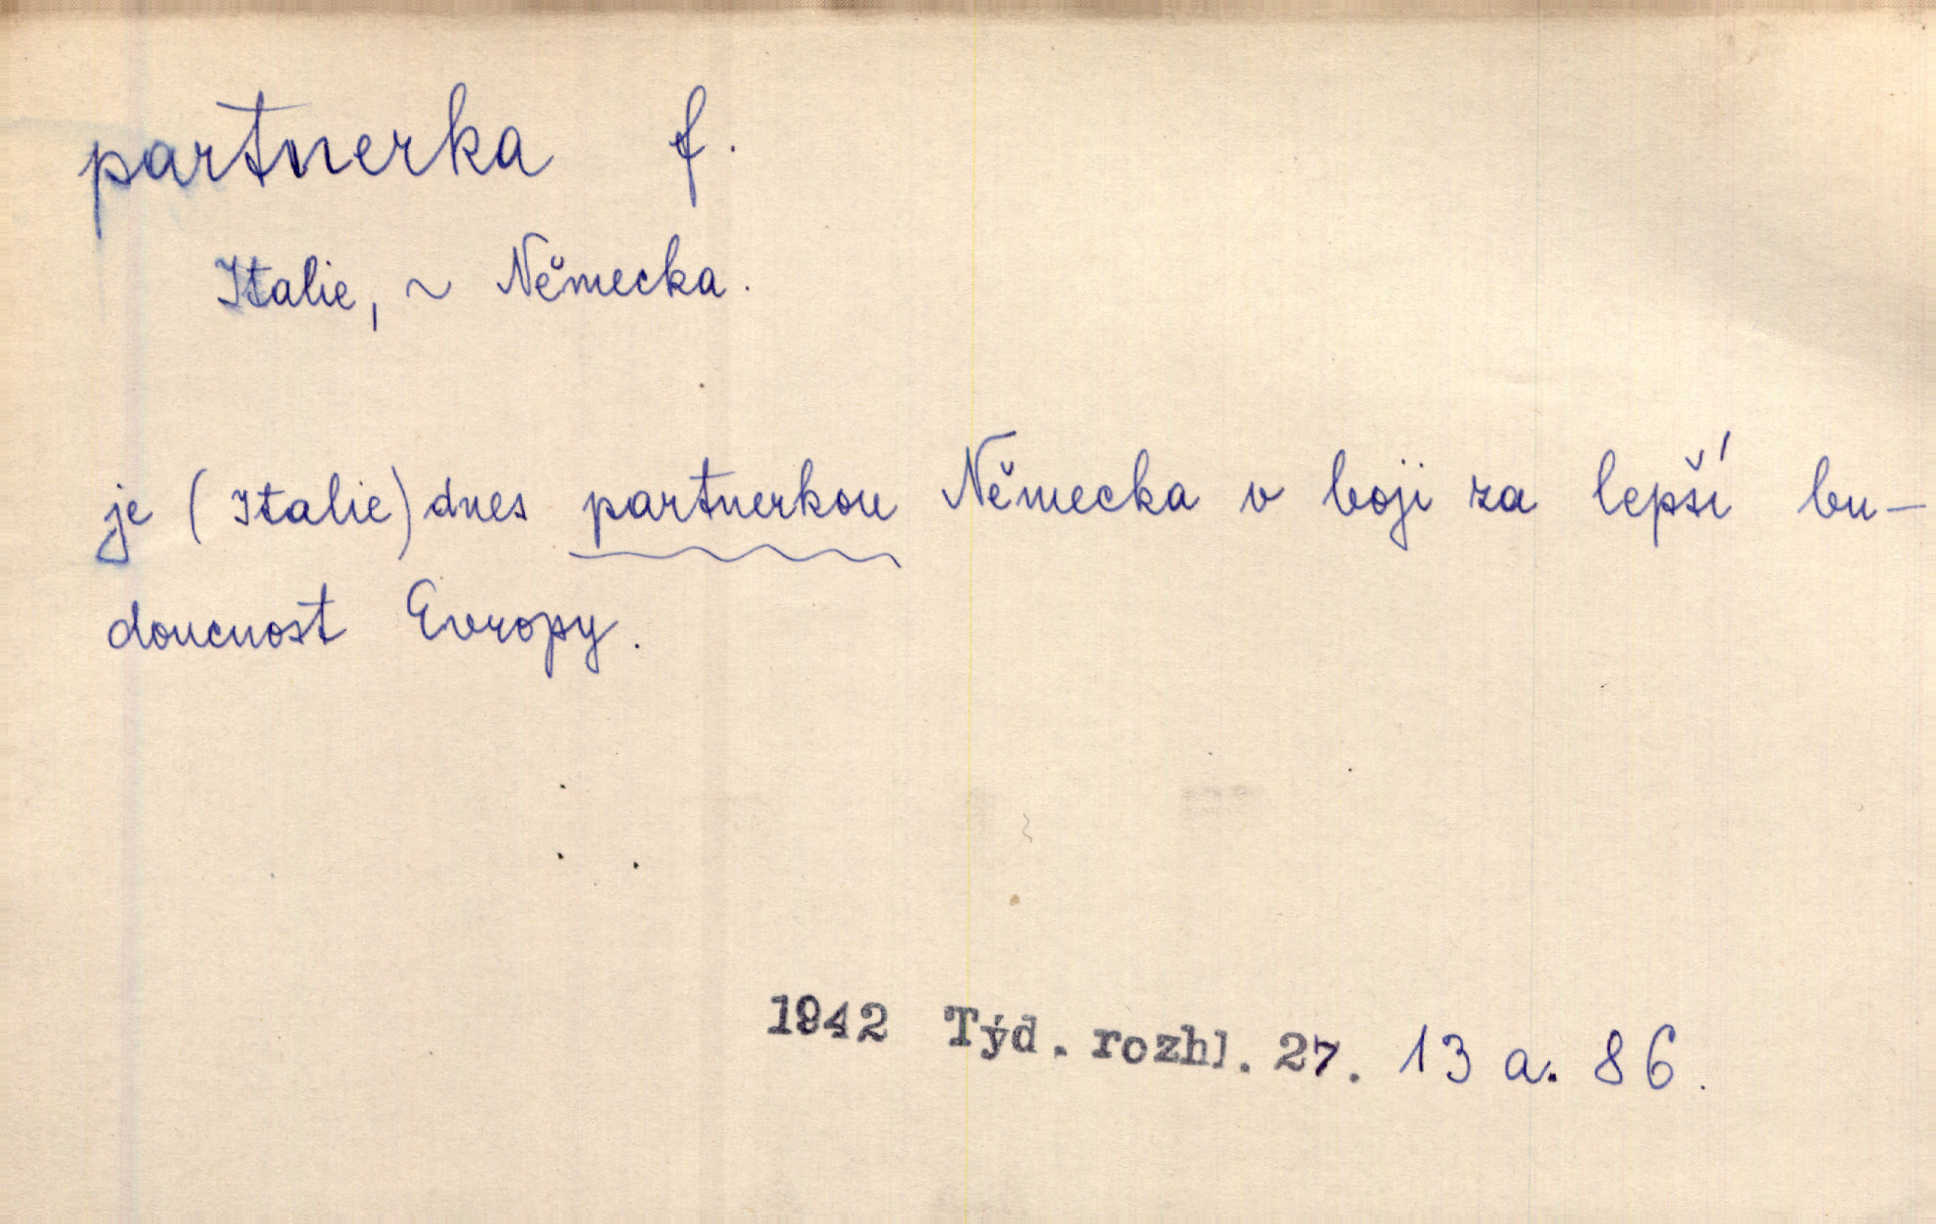 partnerka f.
Italie, ~ Německa.
je (Italie) dnes partnerkou Německa v boji za lepší bu-
doucnost Evropy.
1942 Týd. rozhl. 27. 13 a. 86.